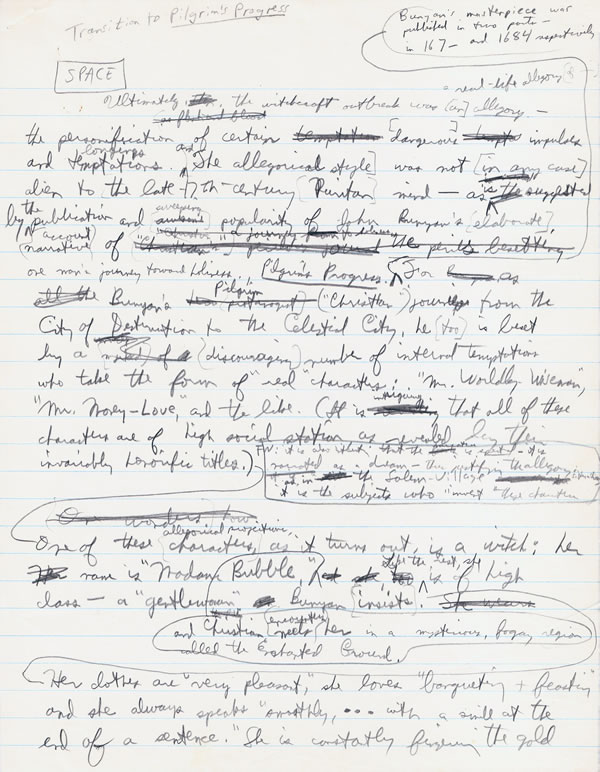 Transition to Pilgrim's Progress
Bunyan's masterpiece was
published in two parts—
in 167– and 1684 respectively
SPACE
= real-life allegory
Ultimately, the witchcraft outbreak was [an] allegory —
the personification of certain [dangerous] impulses
and longings and temptations. The allegorical style] was not [in any case]
alien to the late-17th-century Puritan mind — as is suggested
by the publication and sweeping popularity of John Bunyan's [elaborate],
narrative account of
one man's journey toward holiness, Pilgrim's Progress. For as
Bunyan's Pilgrim ("Christian") journeys from the
City of Destruction to the Celestial City, he [too] is beset
by a (discouraging) number of internal temptations
who take the form of "real" characters: "Mr. Worldly Wiseman,"
"Mr. Money-Love," and the like. (It is intriguing that all of these
characters are of high social station as revealed by their
invariably honorific titles.)
FN: it is also that the is
narrated as a dream — the allegory
as in the Salem Village
it is the subjects who "invent" these characters
One of these allegorical projections, characters, as it turns out, is a witch; her
name is "Madam Bubble," like the rest, she is of high
class — a "gentlewoman" Bunyan insists.
and Christian meets (encounters) her in a mysterious, foggy region
called the Enchanted Ground.
Her clothes are "very pleasant," she loves "banqueting + feasting"
and she always speaks "smoothly, ... with a smile at the
end of a sentence." She is constantly fingering the gold